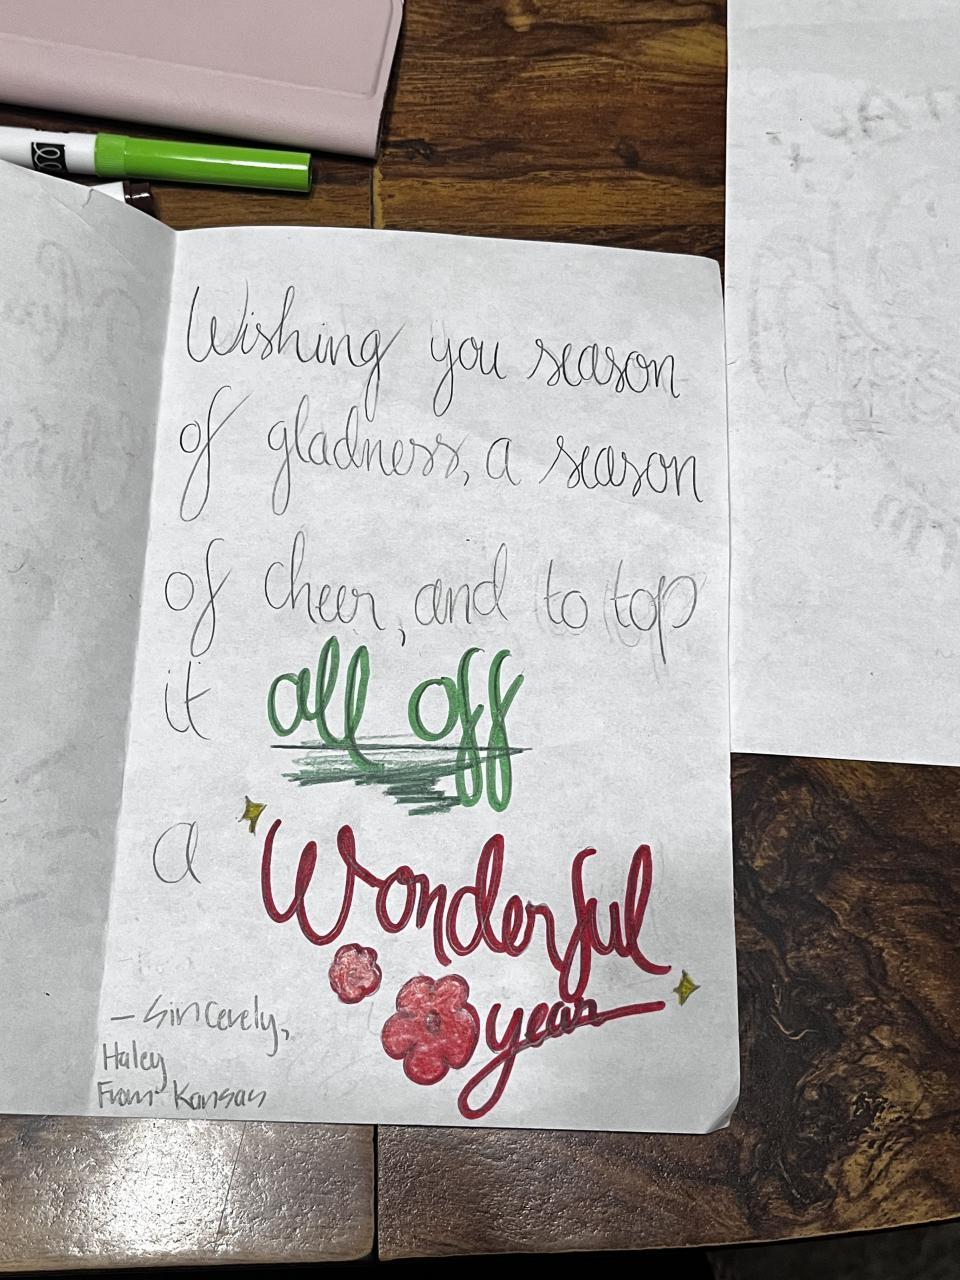 Wishing you season
of gladness, a season
of cheer, and to top
it all off
a Wonderful
year
— Sincerely,
Haley
From Kansas